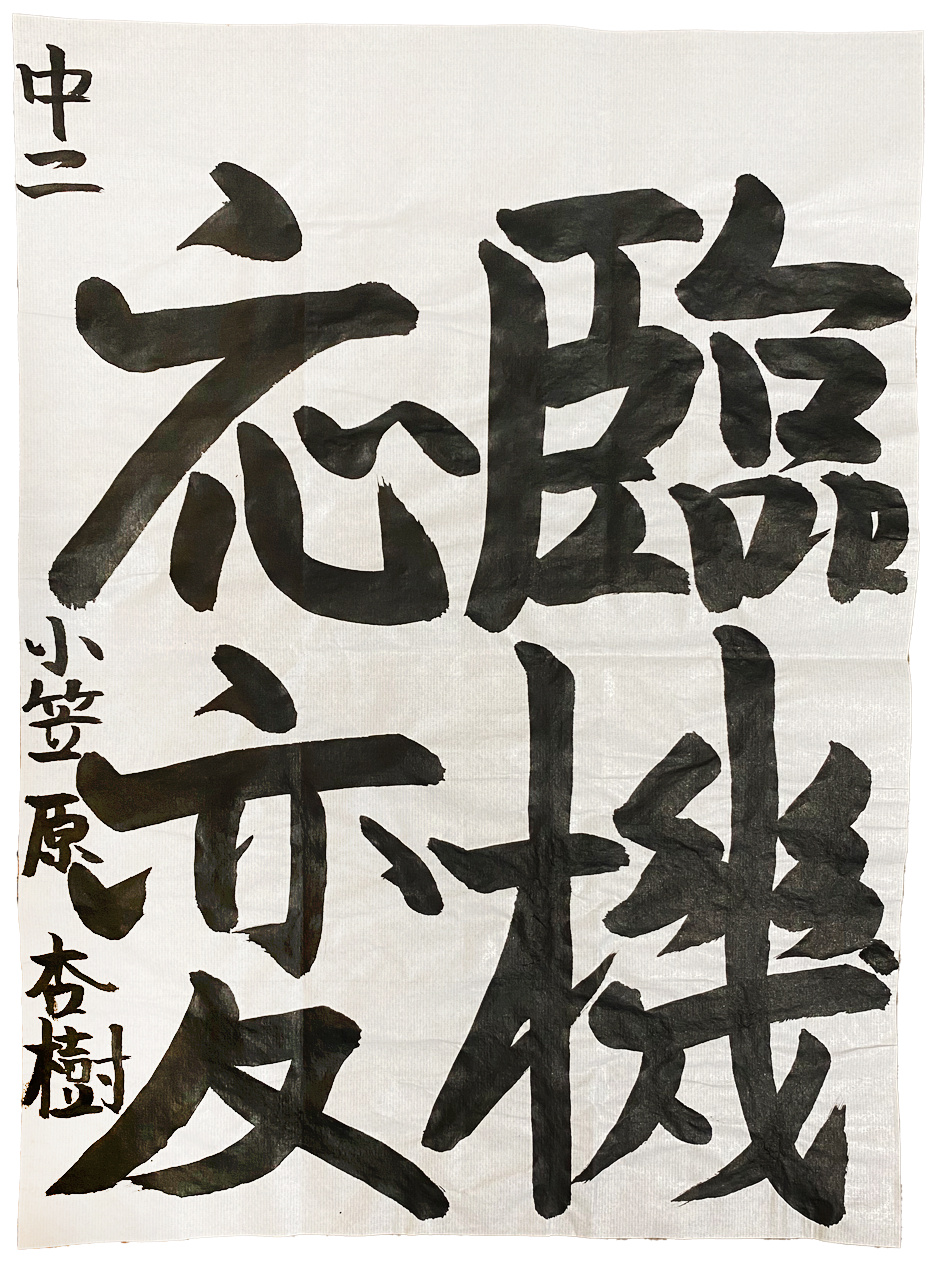 臨機
応変
中二 小笠原 杏樹